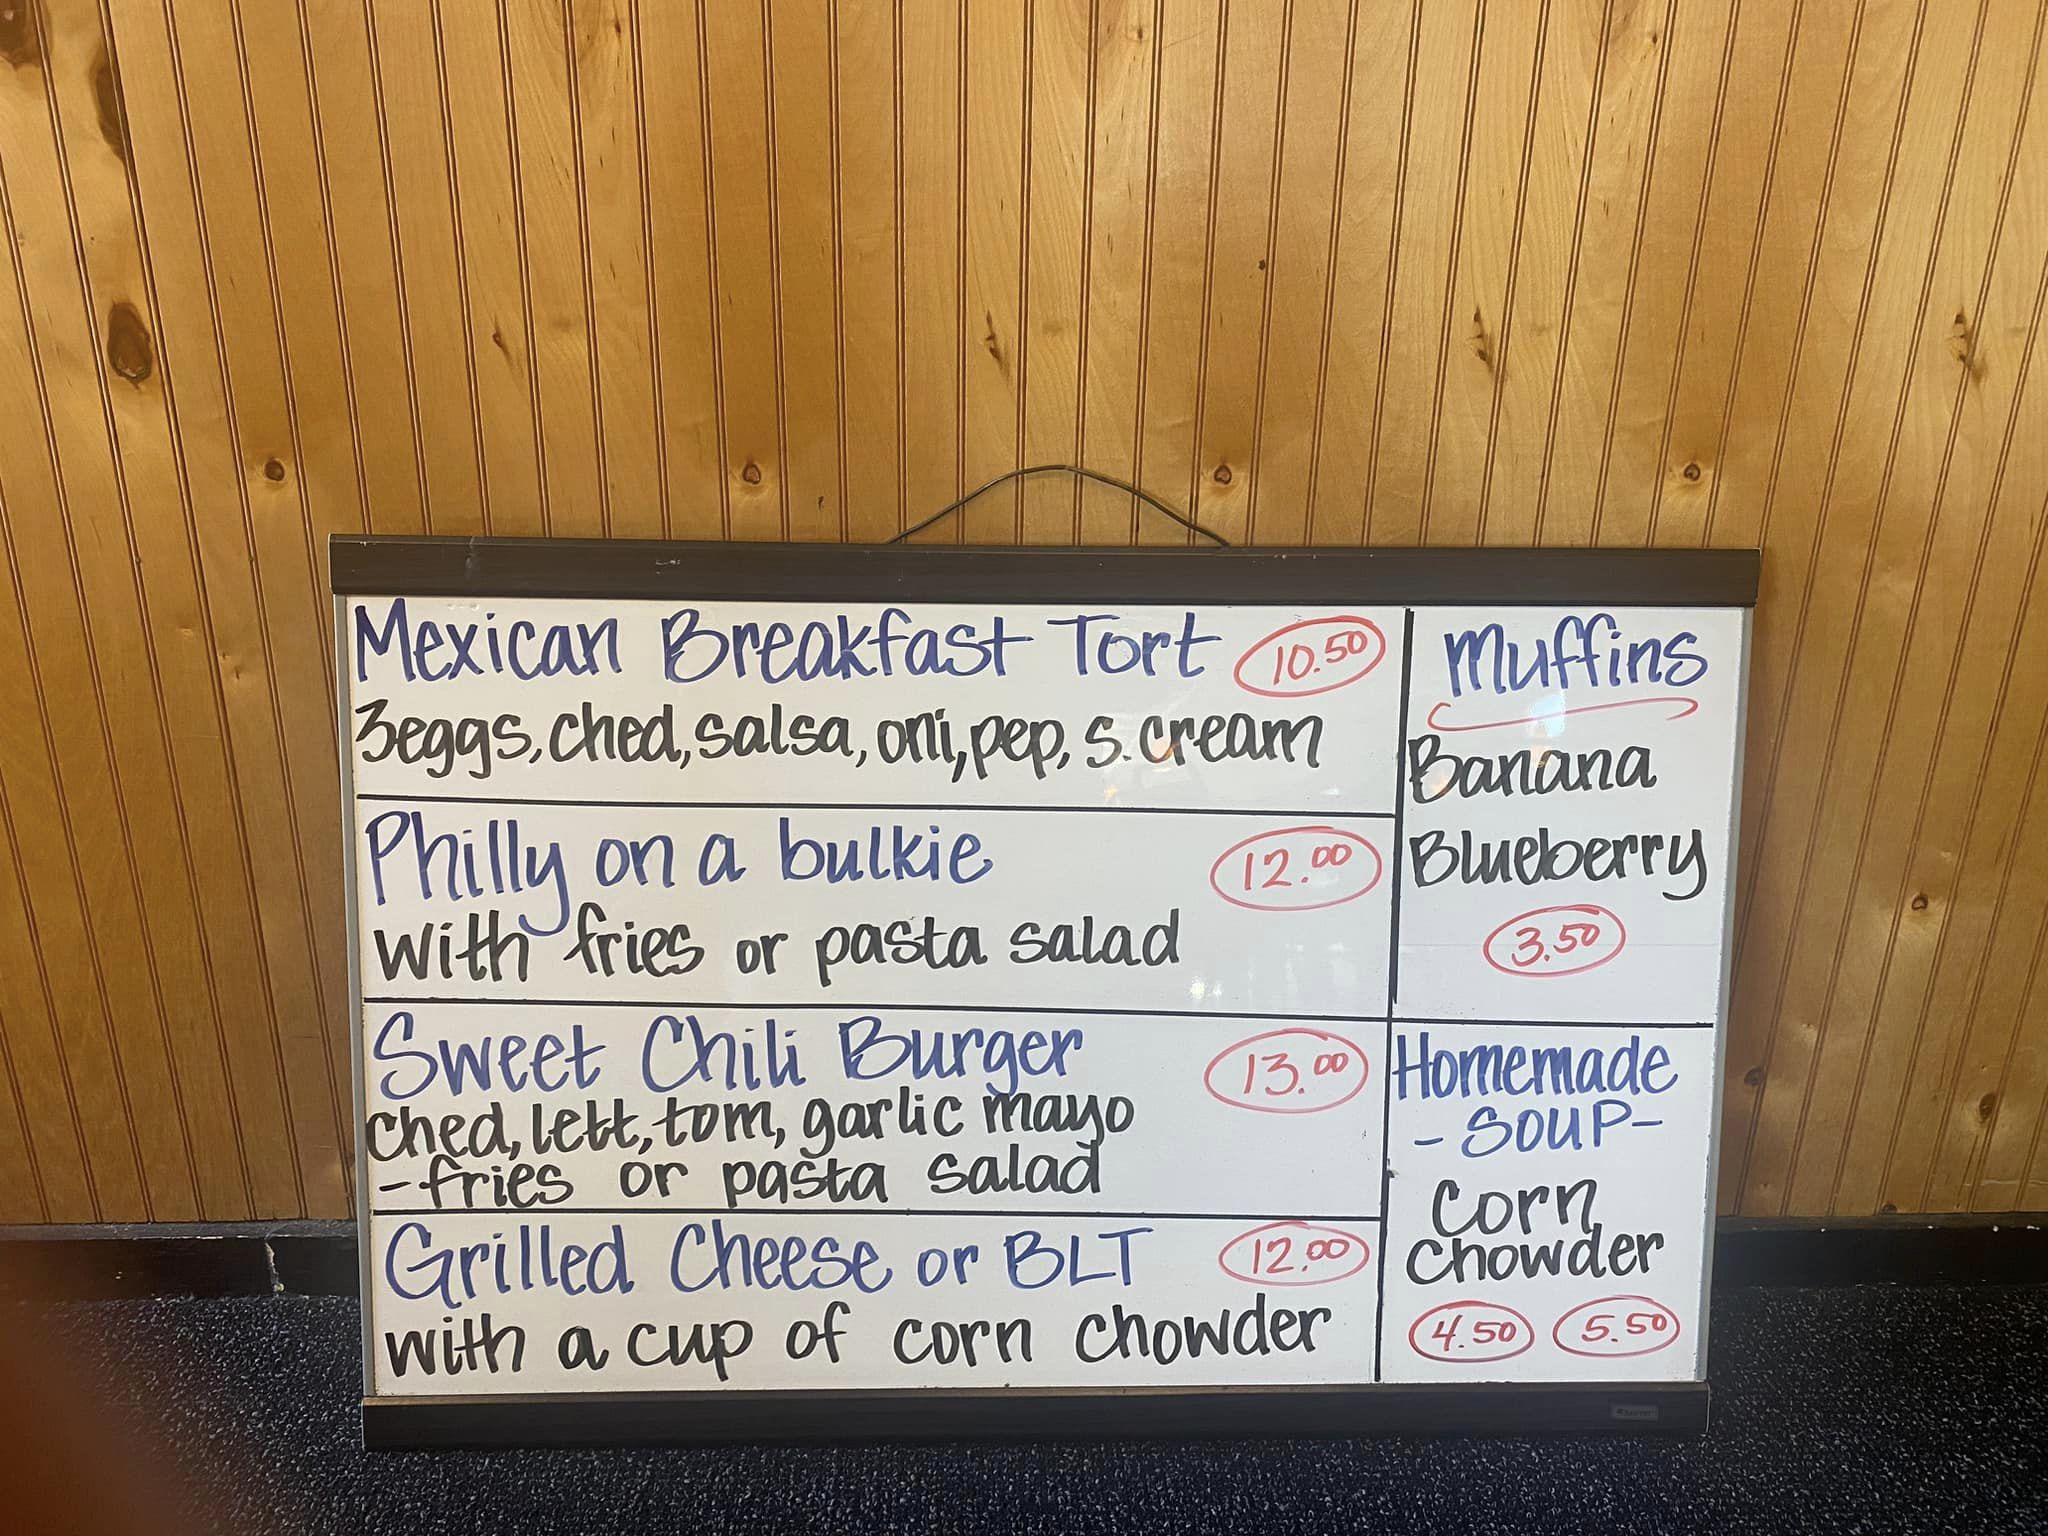 Mexican Breakfast Tort 10.50
3eggs, ched, salsa, oni, pep, s. cream
Philly on a bulkie 12.00
with fries or pasta salad
Sweet Chili Burger 13.00
ched, lett, tom, garlic mayo
- fries or pasta salad
Grilled Cheese or BLT 12.00
with a cup of corn chowder
Muffins
Banana
Blueberry
3.50
Homemade
- SOUP -
Corn
Chowder
4.50 5.50